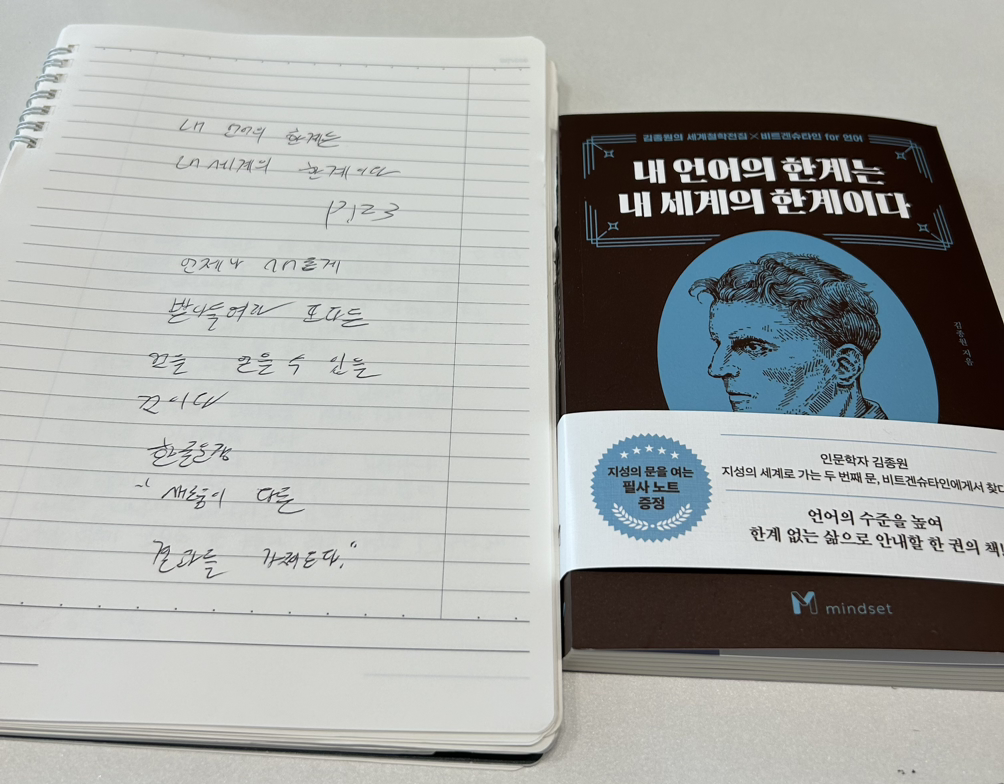 내 언어의 한계는
내 세계의 한계이다
P,123
언제나 새롭게
받아들여라 모다른
것을 얻을 수 있을
것이다
새로움이 다른
결과를 가져온다."
김종원의 세계철학전집×비트겐슈타인 for 언어
내 언어의 한계는
내 세계의 한계이다
김종원 지음
지성의 문을 여는
필사 노트
증정
인문학자 김종원
지성의 세계로 가는 두 번째 문, 비트겐슈타인에게서 찾다
언어의 수준을 높여
한계 없는 삶으로 안내할 한 권의 책!
mindset